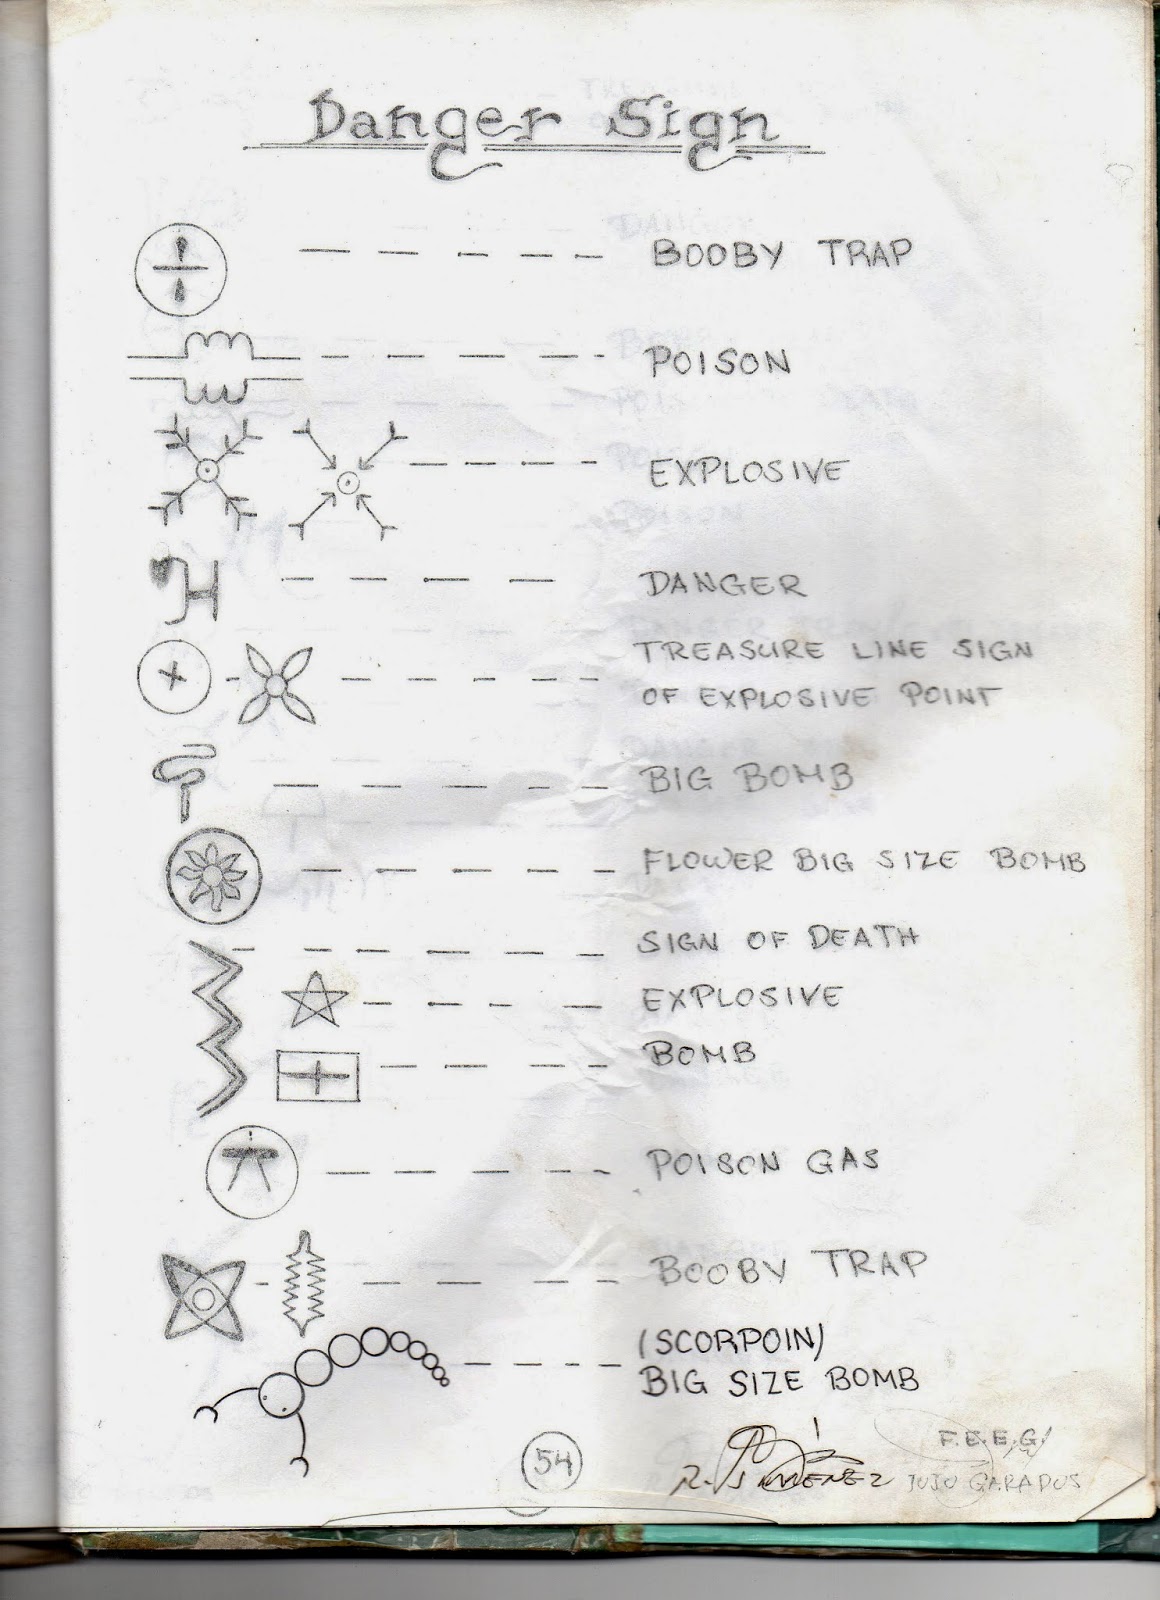 Danger Sign
BOOBY TRAP
POISON
EXPLOSIVE
DANGER
TREASURE LINE SIGN
OF EXPLOSIVE POINT
BIG BOMB
FLOWER BIG SIZE BOMB
SIGN OF DEATH
EXPLOSIVE
BOMB
POISON GAS
BOOBY TRAP
(SCORPOIN)
BIG SIZE BOMB
54
R. JIMENEZ
F.E.E.G.
JUJU GARADOS